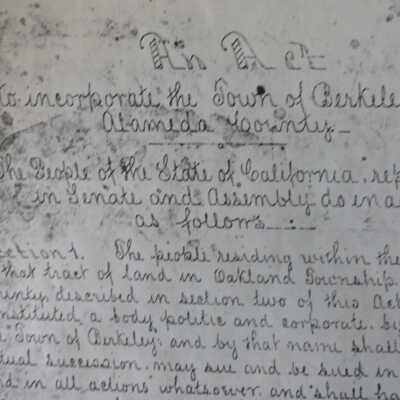 An Act
to incorporate the Town of Berkele
Alameda County
The People of the State of California, rep
in Senate and Assembly do ena
as follows
ection 1. The people residing within the
that tract of land in Oakland Township
ounty, described in section two of this Act
nstituted a body politic and corporate, by
e Town of Berkeley: and by that name shall
tual succession, may sue and be sued in
nd in all actions whatsoever, and shall ha